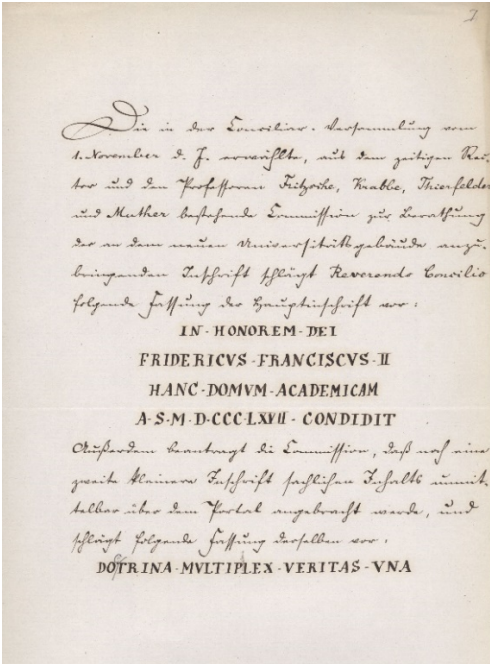 Die in der Conciliar-Versammlung vom
1. November d. J. erwählte, aus dem zeitigen Rec-
tor und den Professoren Fritzsche, Krabbe, Thierfelder
und Muther bestehende Commission zur Berathung
der an dem neuen Universitätsgebäude anzu-
bringenden Inschrift schlägt Reverendo Concilio
folgende Fassung der Hauptinschrift vor:
IN · HONOREM · DEI
FRIDERICVS · FRANCISCVS · II
HANC · DOMVM · ACADEMICAM
A · S · M · D · CCC · LXVII · CONDIDIT
Außerdem beantragt die Commission, daß noch eine
zweite kleinere Inschrift sachlichen Inhalts unmit-
telbar über dem Portal angebracht werde, und
schlägt folgende Fassung derselben vor:
DOTRINA · MVLTIPLEX · VERITAS · VNA